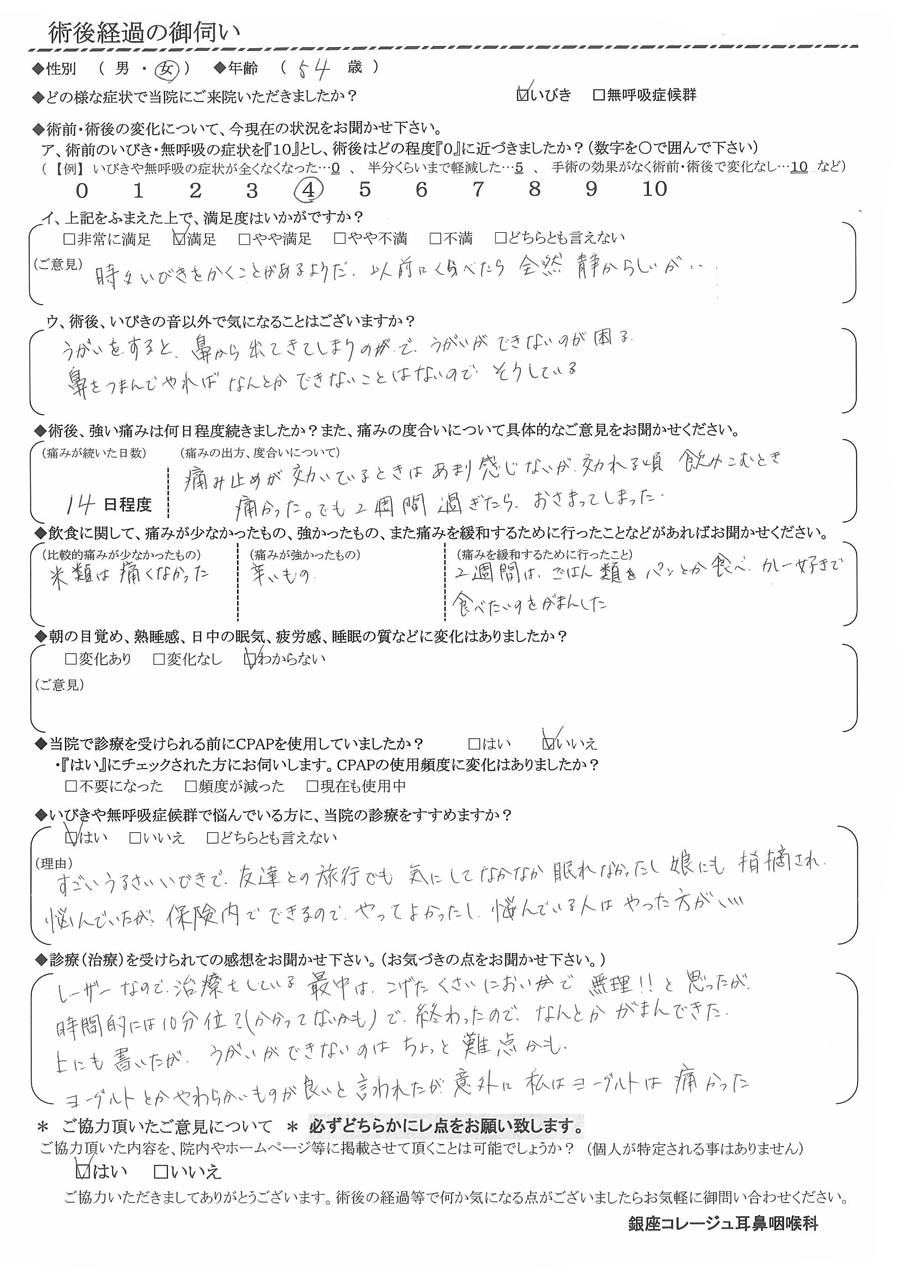 術後経過の御伺い
◆性別 （ 男 ・ 女 ） ◆年齢 （ 54 歳 ）
◆どの様な症状で当院にご来院いただきましたか？ ☑いびき □無呼吸症候群
◆術前・術後の変化について、今現在の状況をお聞かせ下さい。
ア、術前のいびき・無呼吸の症状を『10』とし、術後はどの程度『0』に近づきましたか？（数字を〇で囲んで下さい）
（ 【例】 いびきや無呼吸の症状が全くなくなった…0 、 半分くらいまで軽減した…5 、 手術の効果がなく術前・術後で変化なし…10 など）
0 1 2 3 ④ 5 6 7 8 9 10
イ、上記をふまえた上で、満足度はいかがですか？
□非常に満足 ☑満足 □やや満足 □やや不満 □不満 □どちらとも言えない
（ご意見） 時々いびきをかくことがあるようだ、以前にくらべたら 全然 静からしいが・・
ウ、術後、いびきの音以外で気になることはございますか？
うがいをすると、鼻から出てきてしまうのがで、うがいができないのが困る
鼻をつまんでやればなんとかできないことはないので そうしている
◆術後、強い痛みは何日程度続きましたか？また、痛みの度合いについて具体的なご意見をお聞かせください。
（痛みが続いた日数） （痛みの出方、度合いについて）
痛み止めが効いているときはあまり感じないが、効れる頃 飲みこむとき
14 日程度 痛かった。でも2週間過ぎたら、おさまってしまった。
◆飲食に関して、痛みが少なかったもの、強かったもの、また痛みを緩和するために行ったことなどがあればお聞かせください。
（比較的痛みが少なかったもの） （痛みが強かったもの） （痛みを緩和するために行ったこと）
米類は痛くなかった 辛いもの 2週間は、ごはん類をパンとか食べ、カレー好きで
食べたいのをがまんした
◆朝の目覚め、熟睡感、日中の眠気、疲労感、睡眠の質などに変化はありましたか？
□変化あり □変化なし ☑わからない
（ご意見）
◆当院で診療を受けられる前にCPAPを使用していましたか？ □はい ☑いいえ
・『はい』にチェックされた方にお伺いします。CPAPの使用頻度に変化はありましたか？
□不要になった □頻度が減った □現在も使用中
◆いびきや無呼吸症候群で悩んでいる方に、当院の診療をすすめますか？
☑はい □いいえ □どちらとも言えない
（理由）
すごいうるさいいびきで、友達との旅行でも気にしてなかなか眠れなかったし娘にも指摘され、
悩んでいたが、保険内でできるので、やってよかったし、悩んでいる人はやった方がいい
◆診療（治療）を受けられての感想をお聞かせ下さい。（お気づきの点をお聞かせ下さい。）
レーザーなので、治療をしている最中は、こげたくさいにおいがで無理!!と思ったが、
時間的には10分位?（かかってないかも）で、終わったので、なんとかがまんできた。
上にも書いたが、うがいができないのはちょっと難点かも、
ヨーグルトとかやわらかいものが良いと言われたが、意外に私はヨーグルトは痛かった
＊ ご協力頂いたご意見について ＊ 必ずどちらかにレ点をお願い致します。
ご協力頂いた内容を、院内やホームページ等に掲載させて頂くことは可能でしょうか？ （個人が特定される事はありません）
☑はい □いいえ
ご協力いただきましてありがとうございます。術後の経過等で何か気になる点がございましたらお気軽に御問い合わせください。
銀座コレージュ耳鼻咽喉科